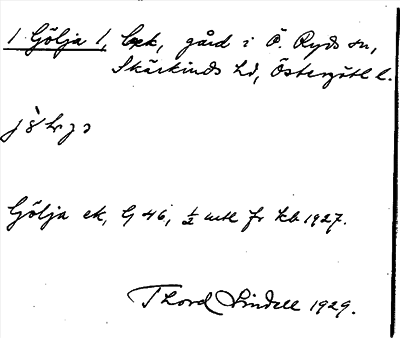 1 Gölja 1, Bek, gård i Ö. Ryds sn,
Skärkinds hd, Östergötl l.
Gölja ek, G 46, ½ mtl fr Kb 1927.
Thord Lindell 1929.